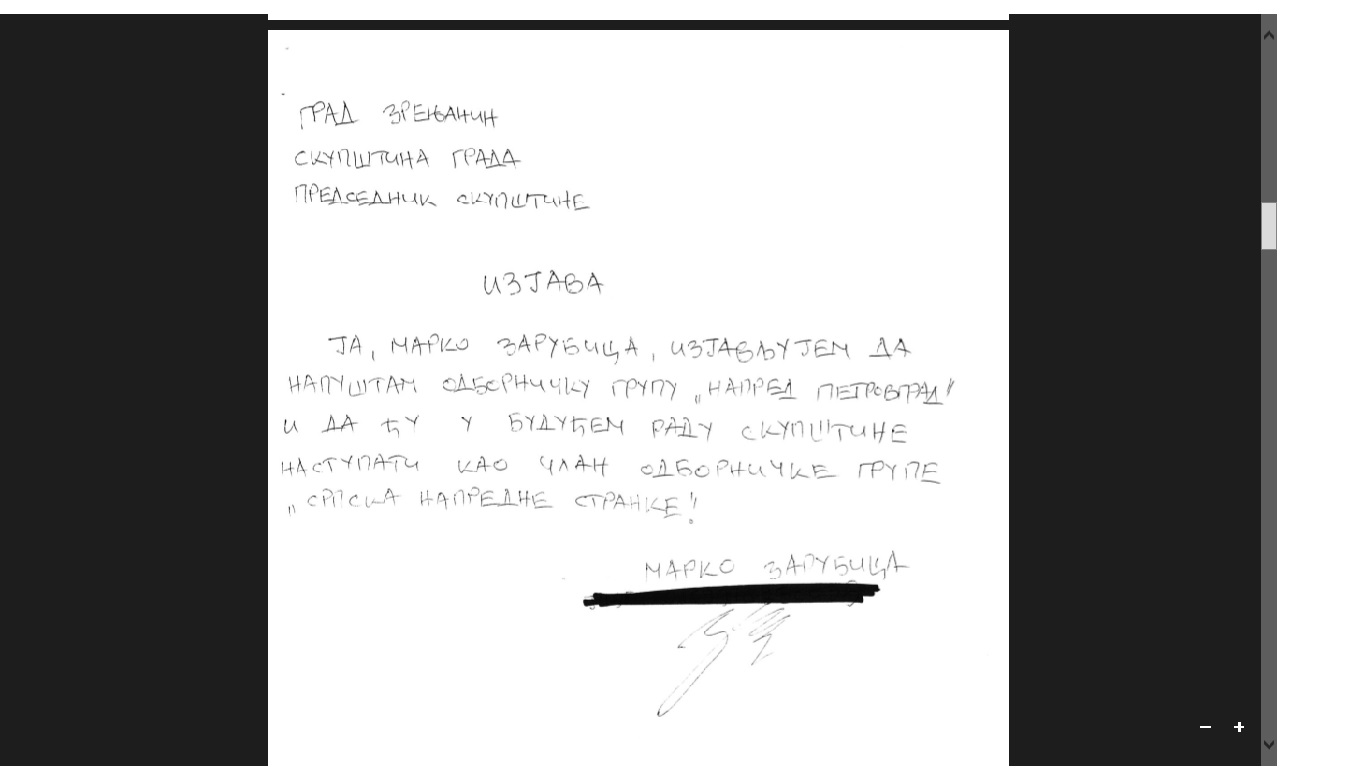 ГРАД ЗРЕЊАНИН
СКУПШТИНА ГРАДА
ПРЕДСЕДНИК СКУПШТИНЕ
ИЗЈАВА
ЈА, МАРКО ЗАРУБИЦА, ИЗЈАВЉУЈЕМ ДА
НАПУШТАМ ОДБОРНИЧКУ ГРУПУ „НАПРЕД ПЕТРОВГРАД"
И ДА ЋУ У БУДУЋЕМ РАДУ СКУПШТИНЕ
НАСТУПАТИ КАО ЧЛАН ОДБОРНИЧКЕ ГРУПЕ
„СРПСКА НАПРЕДНЕ СТРАНКЕ"!
МАРКО ЗАРУБИЦА